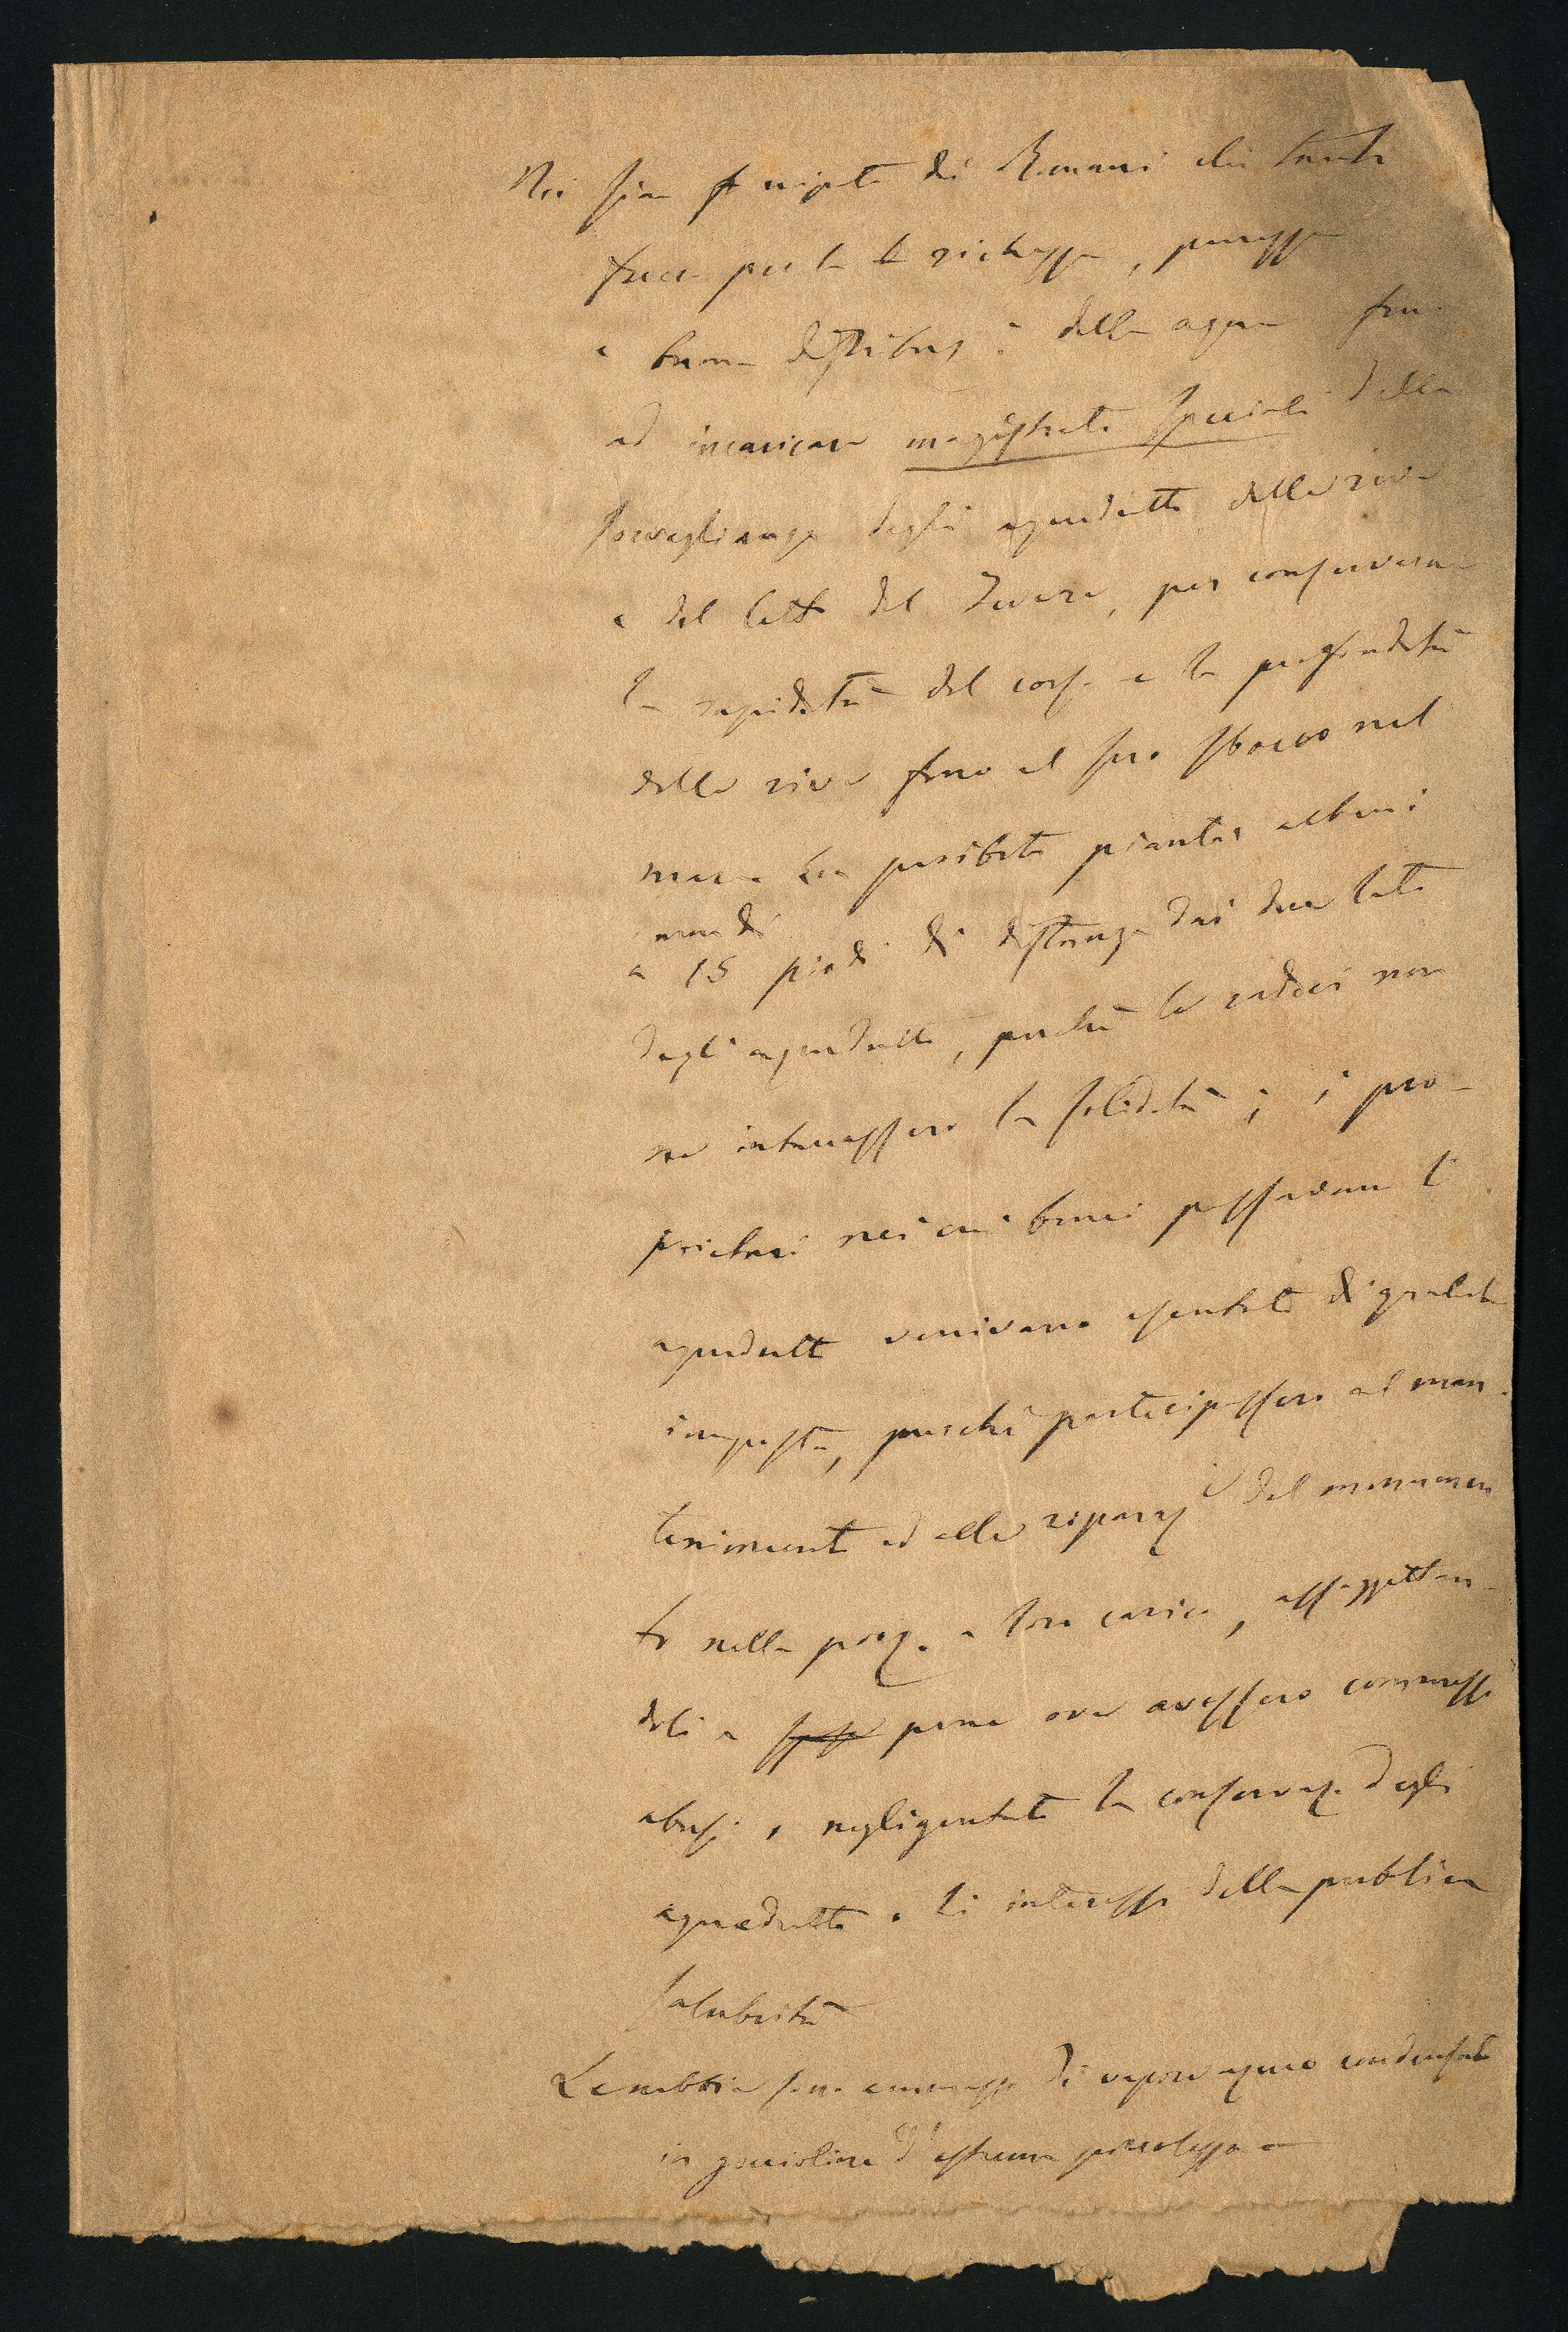 Noi siam nipoti dei Romani che tanto
fecero per la ricchezza, purezza
e buona distribuz.e delle acque fino
ad incaricare magistrati speciali della
sorveglianza degli aquedotti delle rive
e del letto del Tevere, per conservarne
la rapidità del corso e la profondità
delle rive fino al suo sbocco nel
mare Era proibito piantar alberi
a meno di 15 piedi di distanza dai due lati
degli aquedotti, perché le radici non
ne intaccassero la solidità; i pro-
prietari nei cui beni passavano li
aquedotti venivano esentati di qualche
imposta, purché partecipassero al man-
tenimento ed alle riparaz.i del monumen
to nella porz.e a loro carico, assoggettan-
doli a pene ove avessero commessi
abusi, negligentata la conservaz. degli
aquedotti o li interessi della pubblica
salubrità
Le nebbie sono ammassi di vapore aqueo condensato
in goccioline d'estrema piccolezza e